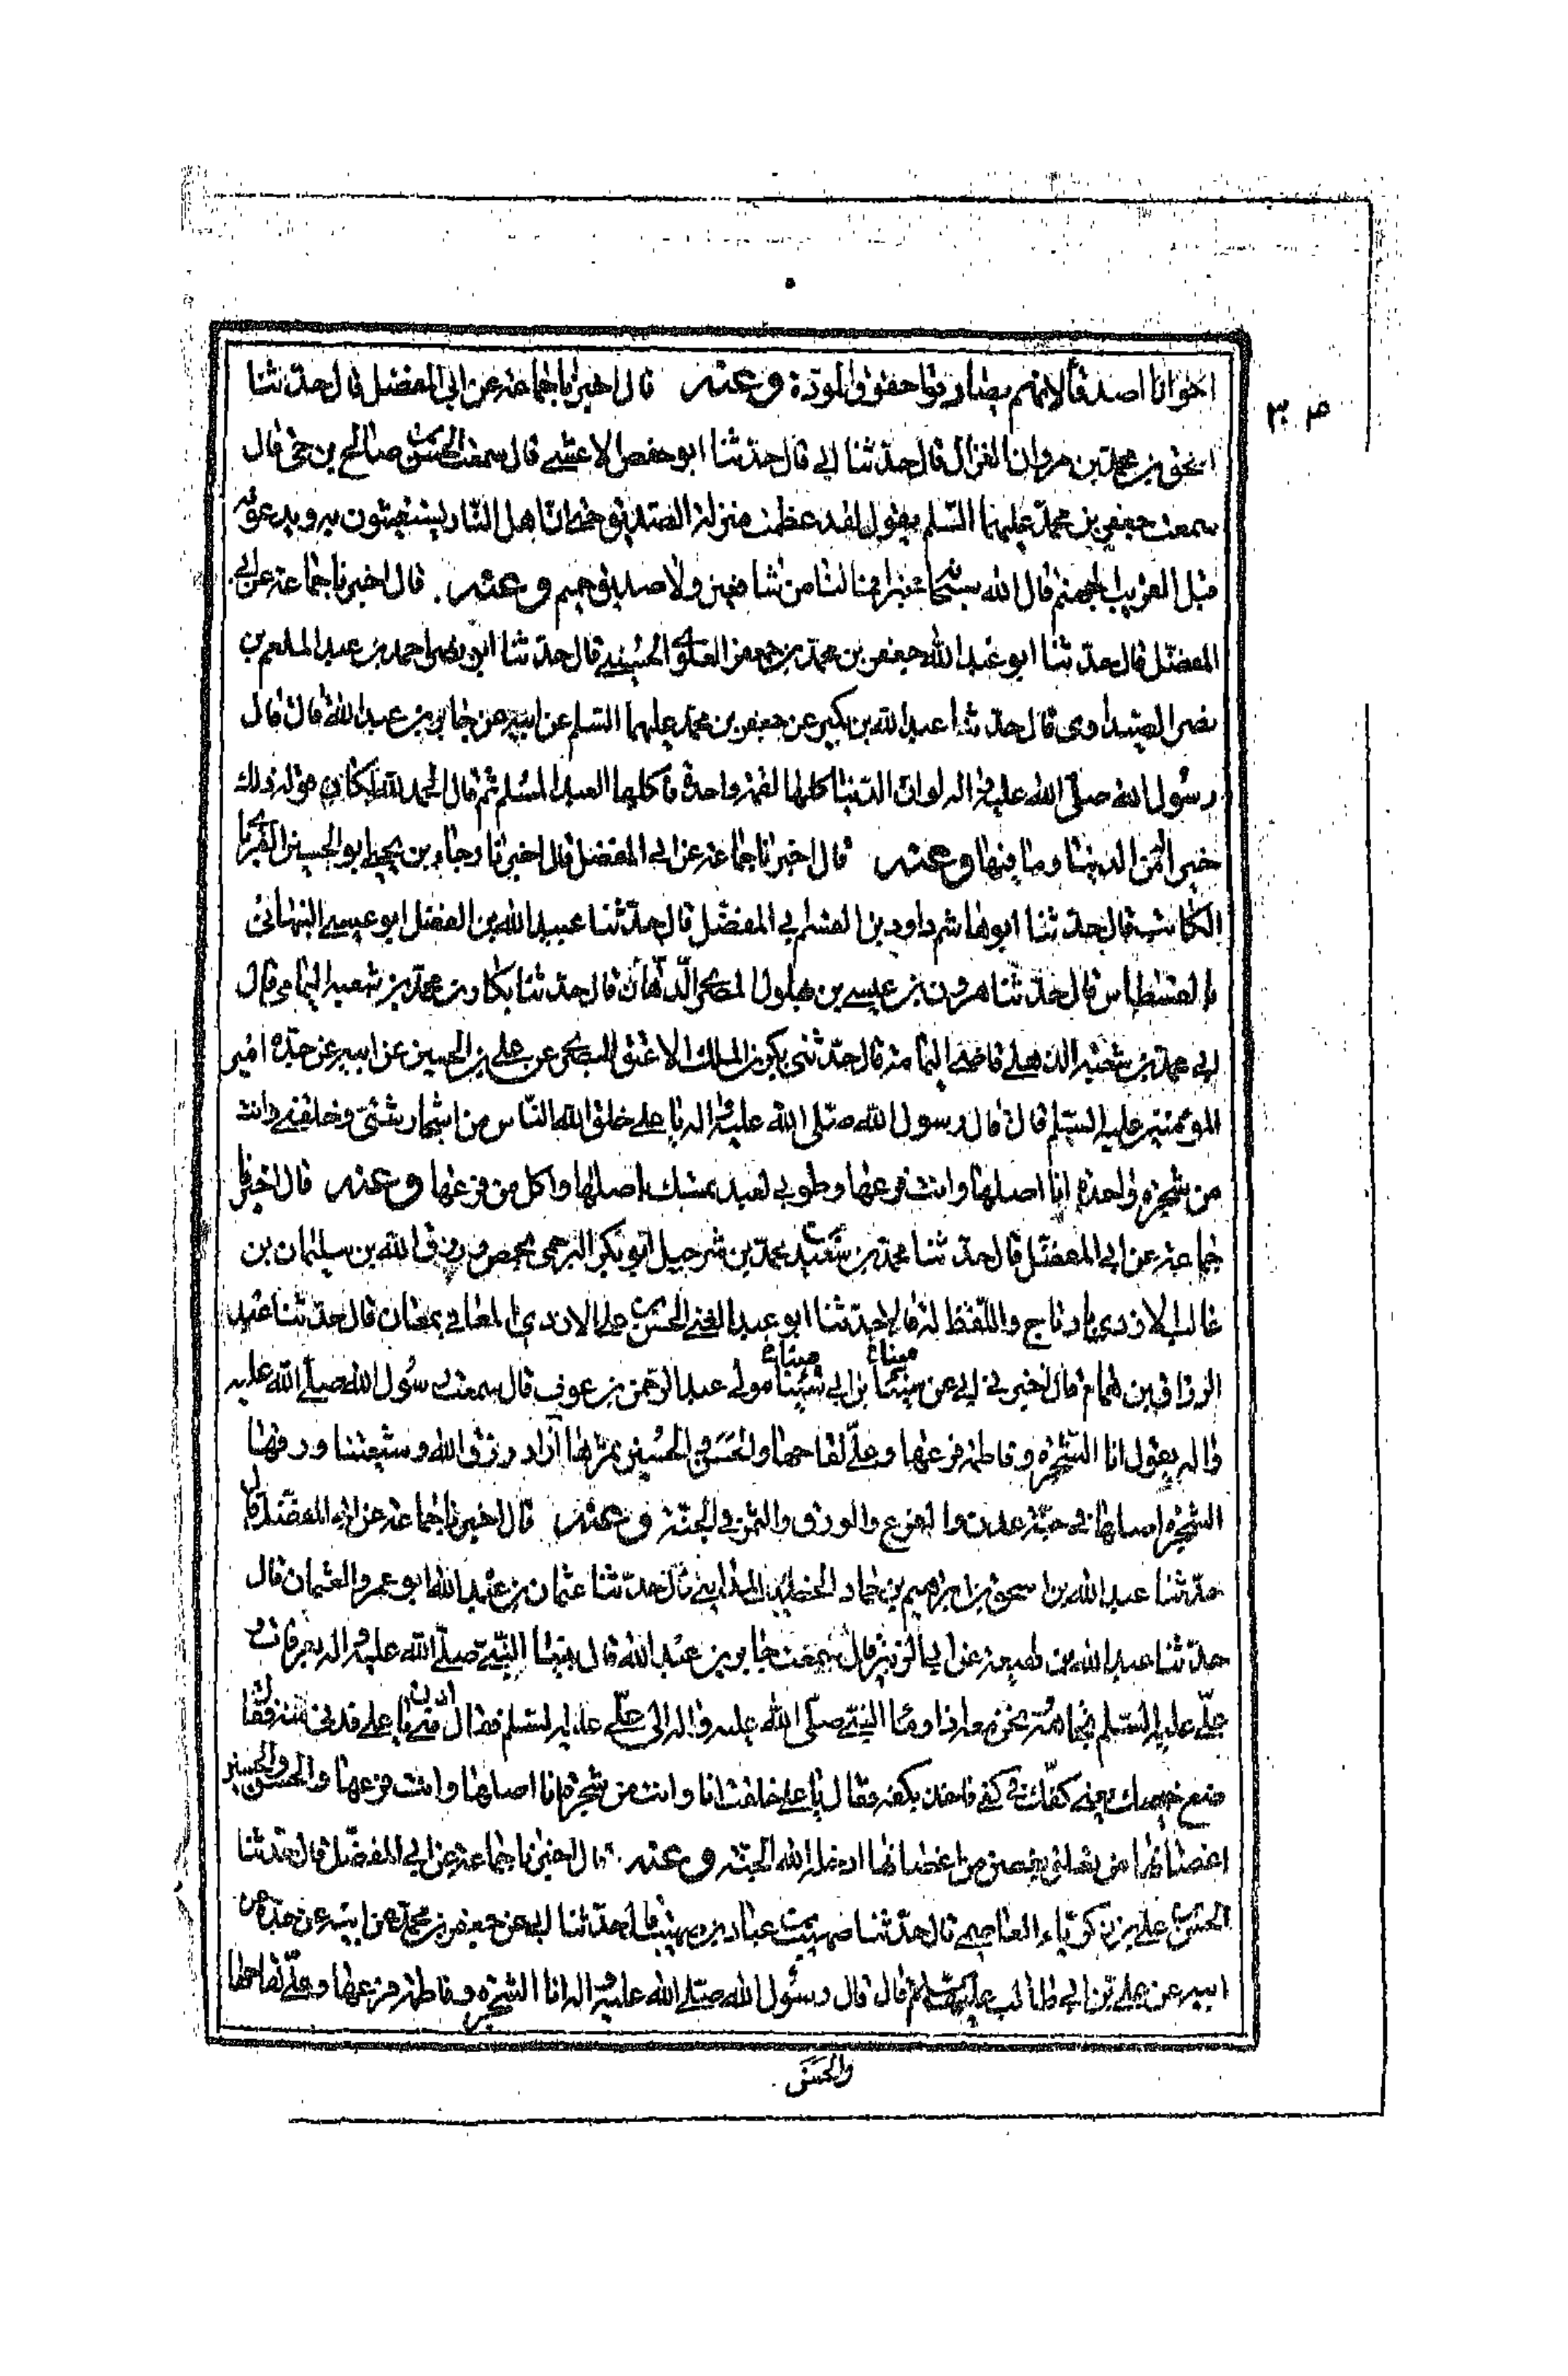 اخوانا اصدقا لانهم يصادقوا حقوق المودة وعنه قال اخبرنا جماعة عن ابي المفضل قال حدثنا
اسحق بن محمد بن مروان الغزال قال حدثنا ابي قال حدثنا ابو حفص الاعشى قال سمعت الحسن بن صالح بن حي قال
سمعت جعفر بن محمد عليهما السلم يقول لقد عظمت منزلة الصديق حتى ان اهل النار يستغيثون به ويدعونه
قبل القريب الحميم قال الله سبحانه مخبرا عنهم فما لنا من شافعين ولا صديق حميم وعنه قال اخبرنا جماعة عن ابي
المفضل قال حدثنا ابو عبد الله جعفر بن محمد بن جعفر العلوي الحسيني قال حدثنا ابو نصر احمد بن عبد المنعم بن
نصر الصيداوي قال حدثنا عبد الله بن بكير عن جعفر بن محمد عليهما السلم عن ابيه عن جابر بن عبد الله قال قال
رسول الله صلى الله عليه واله لو ان الدنيا كلها لقمة واحدة فاكلها العبد المسلم ثم قال الحمد لله لكان قوله ذلك
خيرا له من الدنيا وما فيها وعنه قال اخبرنا جماعة عن ابي المفضل قال اخبرنا رجاء بن يحيى ابو الحسين العبرتائي
الكاتب قال حدثنا ابو هاشم داود بن القسم بن المفضل قال حدثنا عبيد الله بن الفضل ابو عيسى النبهاني
بالقسطاس قال حدثنا هرون بن عيسى بن بهلول المصري الدهان قال حدثنا بكار بن محمد بن شعبة اليمامي قال
ابي محمد بن شعبة الذهلي قاضي اليمامة قال حدثني بكر بن الملك الاعتق البصري عن علي بن الحسين عن ابيه عن جده امير
المؤمنين عليه السلم قال قال رسول الله صلى الله عليه واله يا علي خلق الله الناس من اشجار شتى وخلقني وانت
من شجرة واحدة انا اصلها وانت فرعها وطوبى لعبد تمسك باصلها واكل من فرعها وعنه قال اخبرنا
جماعة عن ابي المفضل قال حدثنا محمد بن سعيد بن محمد بن شرحبيل ابو بكر البرجمي بحمص ورزق الله بن سليمان بن
غالب الازدي بارتاج واللفظ له قالا حدثنا ابو عبد الغني الحسن بن علي الازدي المعاني بمعان قال حدثنا عبد
الرزاق بن همام قال اخبرني ابي عن مينا بن ابي مينا مولى عبد الرحمن بن عوف قال سمعت رسول الله صلى الله عليه
واله يقول انا الشجرة وفاطمة فرعها وعلي لقاحها والحسن والحسين ثمرتها زاد رزق الله وشيعتنا ورقها
الشجرة اصلها في جنة عدن والفرع والورق والثمر في الجنة وعنه قال اخبرنا جماعة عن ابي المفضل قال
حدثنا عبد الله بن اسحق بن ابراهيم بن حماد الخطيب المدايني قال حدثنا عثمان بن عبد الله ابو عمرو العثمان قال
حدثنا عبد الله بن لهيعة عن ابي الزبير قال سمعت جابر بن عبد الله قال بينا النبي صلى الله عليه واله بعرفات و
علي عليه السلم تجاهه ونحن معه اذ اومأ النبي صلى الله عليه واله الى علي عليه السلم فقال ادن مني يا علي فدنى منه فقال
ضع خمسك يعني كفك في كفي فاخذ بكفه فقال يا علي خلقت انا وانت من شجرة انا اصلها وانت فرعها والحسن والحسين
اغصانها من تعلق بغصن من اغصانها ادخله الله الجنة وعنه قال اخبرنا جماعة عن ابي المفضل قال حدثنا
الحسن بن علي بن زكرياء العاصمي قال حدثنا صهيب بن عباد بن صهيب قال حدثنا ابي عن جعفر بن محمد عن ابيه عن جده عن
ابيه عن علي بن ابي طالب عليهم السلم قال قال رسول الله صلى الله عليه واله انا الشجرة وفاطمة فرعها وعلي لقاحها
والحسن